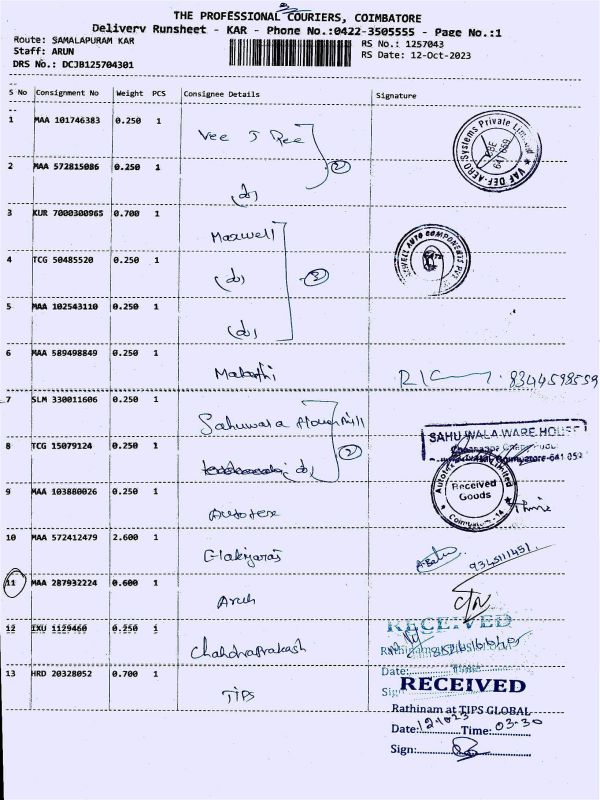 THE PROFESSIONAL COURIERS, COIMBATORE
Delivery Runsheet - KAR - Phone No.:0422-3505555 - Page No.:1
Route: SAMALAPURAM KAR
RS No.: 1257043
Staff: ARUN
RS Date: 12-Oct-2023
DRS No.: DCJB125704301
S No Consignment No Weight PCS Consignee Details Signature
1 MAA 101746383 0.250 1 Vee J Pee
VAF DEF-AERO Systems Private Limited
641 659
2 MAA 572815086 0.250 1 (do) 2
3 KUR 7000300965 0.700 1 Maxwell
4 TCG 50485520 0.250 1 (do) 3
AUTO COMPONENTS PVT
5 MAA 102543110 0.250 1 (do)
6 MAA 589498849 0.250 1 Malathi 8344598559
7 SLM 330011606 0.250 1 Sahuwala flour Mill
SAHU WALA WARE HOUSE
8 TCG 15079124 0.250 1 do) 2
Coimbatore-641 052
9 MAA 103880026 0.250 1 Autotex
Received
Goods
Limited
10 MAA 572412479 2.600 1 9345111451
11 MAA 287932224 0.600 1 Arul
12 IXU 1129460 0.250 1 Chandraprakash
RECEIVED
Date: Time:
13 HRD 20328052 0.700 1 TIPS
RECEIVED
Rathinam at TIPS GLOBAL
Date: 121023 Time: 03-30
Sign: